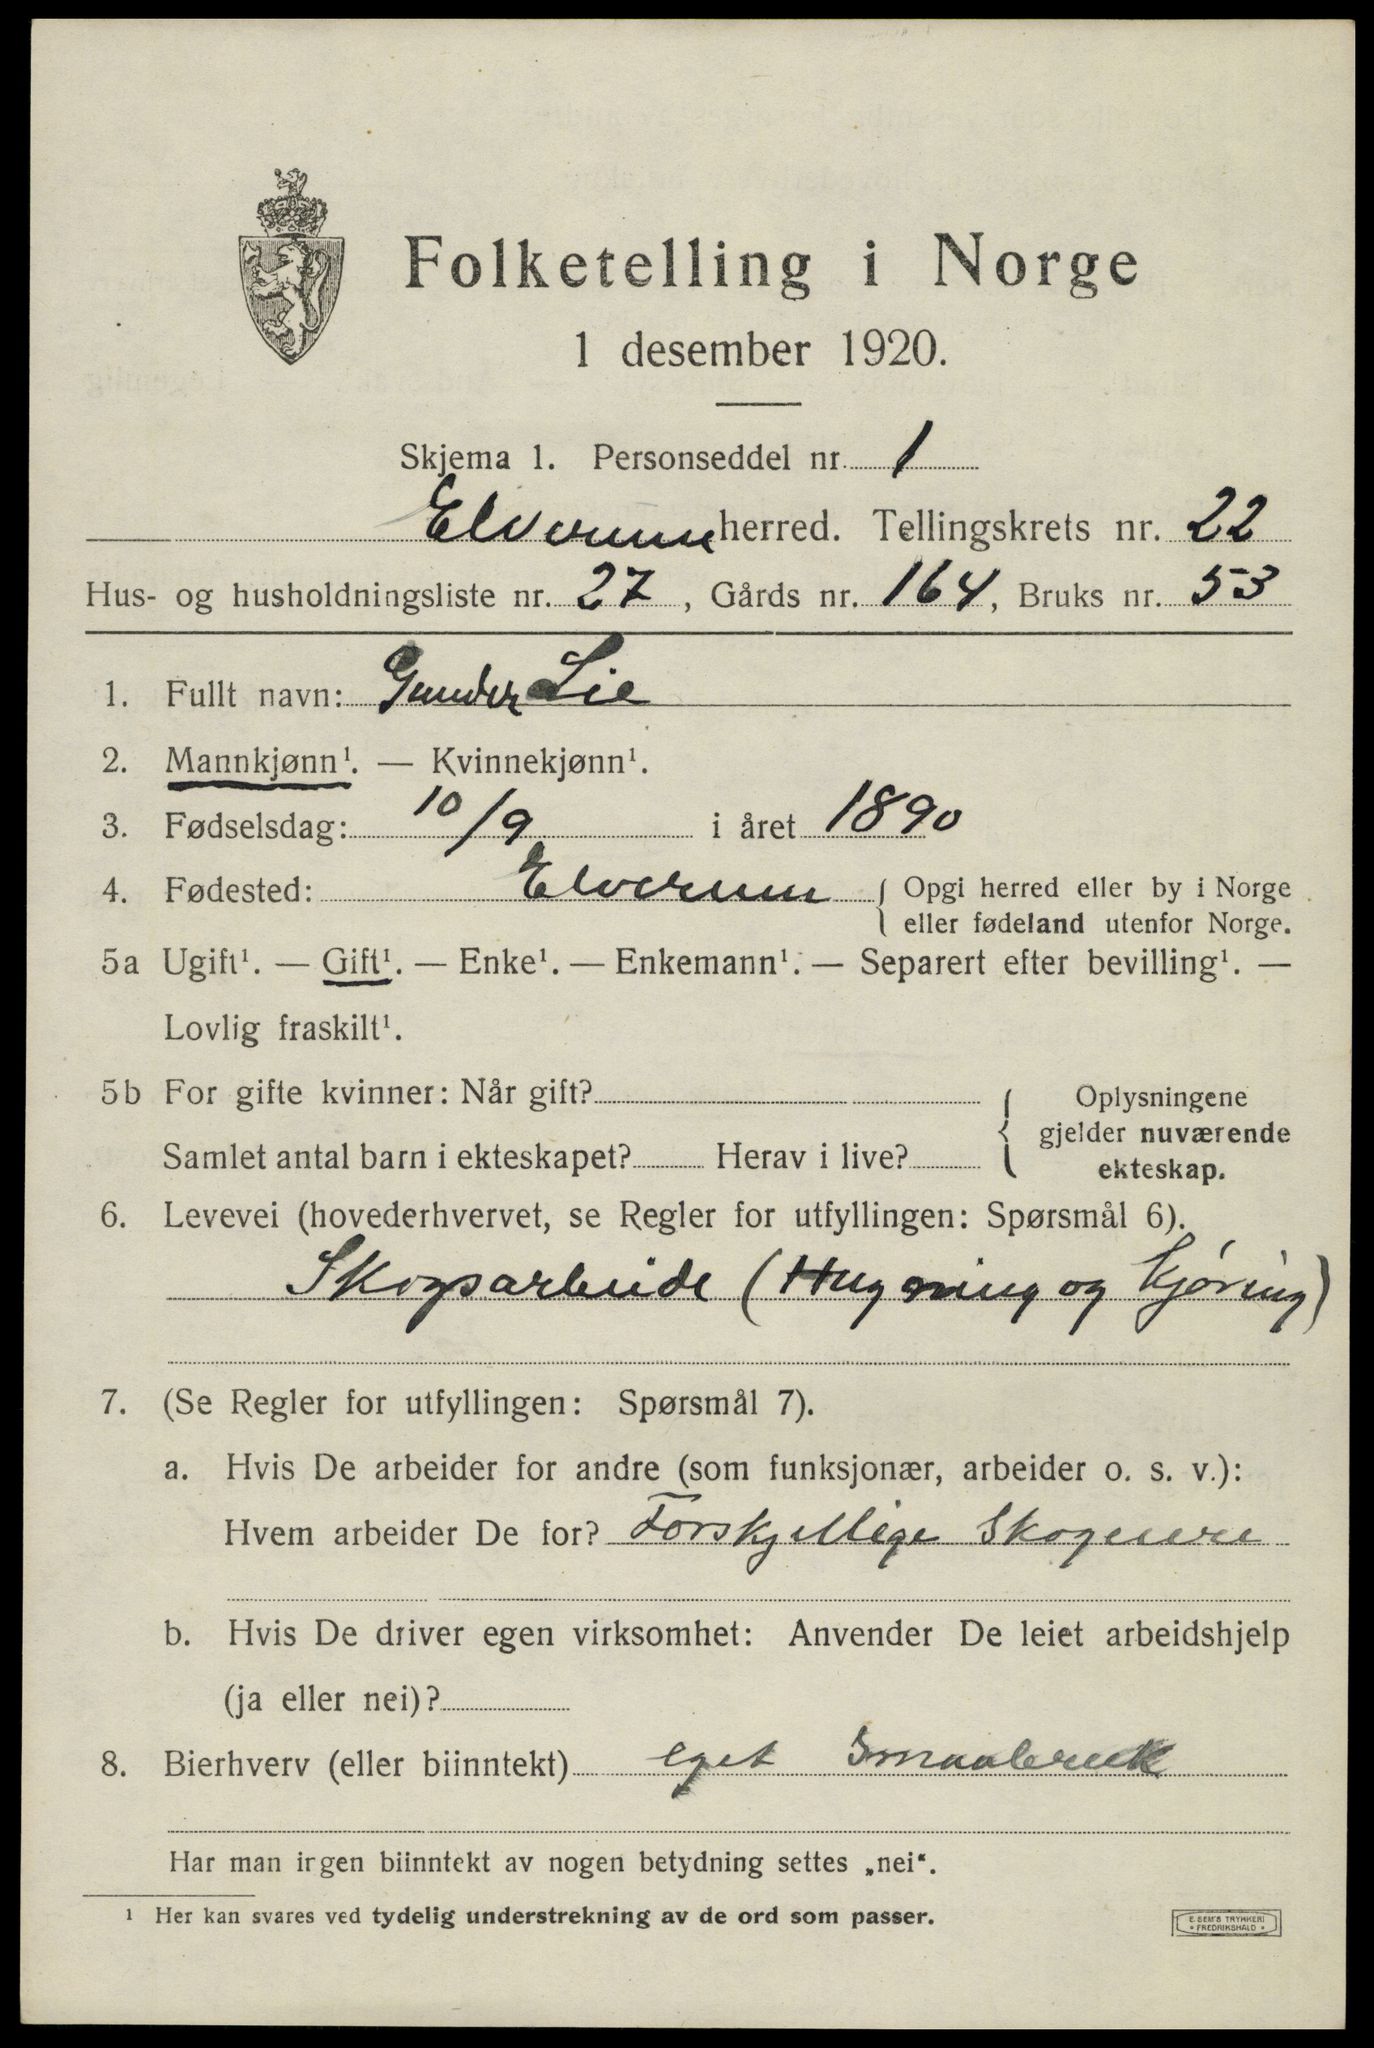 Folketelling i Norge
1 desember 1920.
Skjema 1. Personseddel nr. 1
Elverum herred. Tellingskrets nr. 22
Hus- og husholdningsliste nr. 27, Gårds nr. 164, Bruks nr. 53
1. Fullt navn: Gunder Lie
2. Mannkjønn¹. — Kvinnekjønn¹.
3. Fødselsdag: 10/9 i året 1890
4. Fødested: Elverum { Opgi herred eller by i Norge
eller fødeland utenfor Norge.
5a Ugift¹. — Gift¹. — Enke¹. — Enkemann¹. — Separert efter bevilling¹. —
Lovlig fraskilt¹.
5b For gifte kvinner: Når gift?
Samlet antal barn i ekteskapet? Herav i live?
{ Oplysningene
gjelder nuværende
ekteskap.
6. Levevei (hovederhvervet, se Regler for utfyllingen: Spørsmål 6).
Skogsarbeide (Hugning og kjøring)
7. (Se Regler for utfyllingen: Spørsmål 7).
a. Hvis De arbeider for andre (som funksjonær, arbeider o. s. v.):
Hvem arbeider De for? Forskjellige Skogeiere
b. Hvis De driver egen virksomhet: Anvender De leiet arbeidshjelp
(ja eller nei)?
8. Bierhverv (eller biinntekt) eget Smaabruk
Har man irgen biinntekt av nogen betydning settes „nei“.
¹ Her kan svares ved tydelig understrekning av de ord som passer.
E. SEM'S TRYKKERI
• FREDRIKSHALD •